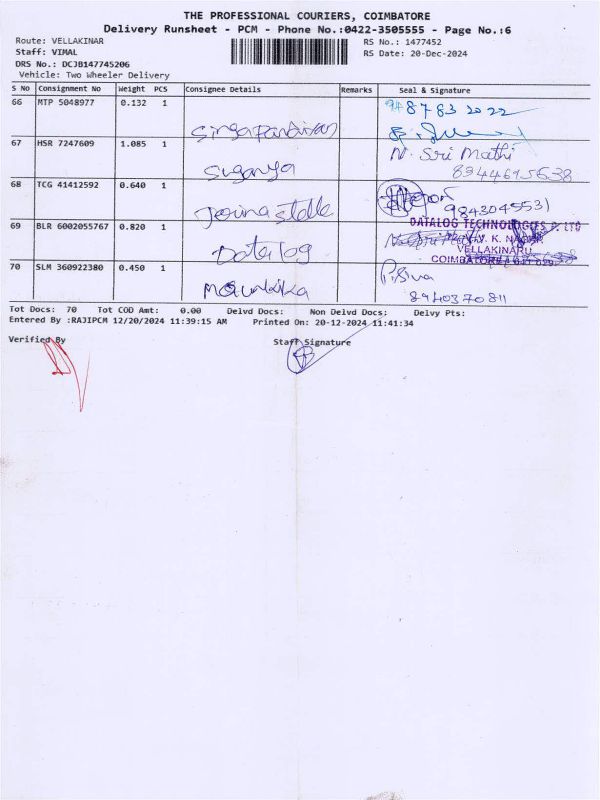 THE PROFESSIONAL COURIERS, COIMBATORE
Delivery Runsheet - PCM - Phone No.:0422-3505555 - Page No.:6
Route: VELLAKINAR
RS No.: 1477452
Staff: VIMAL
RS Date: 20-Dec-2024
DRS No.: DCJB147745206
Vehicle: Two Wheeler Delivery
S No Consignment No Weight PCS Consignee Details Remarks Seal & Signature
66 MTP 5048977 0.132 1
8783 2022
67 HSR 7247609 1.085 1 N. Sri Mathi
Suganya 8344695638
68 TCG 41412592 0.640 1
9843049531
69 BLR 6002055767 0.820 1 DATALOG TECHNOLOGIES P. LTD
K. NAGAR
VELLAKINARU
Datalog COIMBATORE
70 SLM 360922380 0.450 1 P. Siva
8940370811
Tot Docs: 70 Tot COD Amt: 0.00 Delvd Docs: Non Delvd Docs: Delvy Pts:
Entered By :RAJIPCM 12/20/2024 11:39:15 AM Printed On: 20-12-2024 11:41:34
Verified By Staff Signature